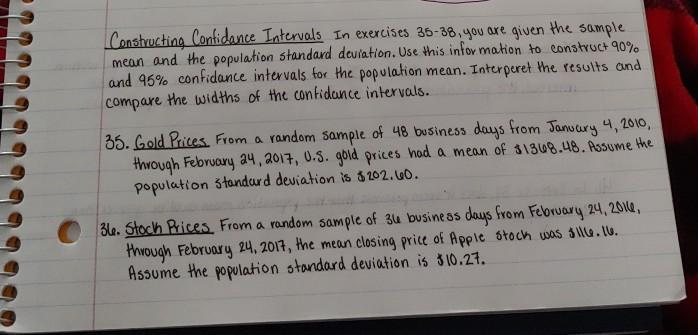 Constructing Confidance Intervals In exercises 35-38, you are given the sample
mean and the population standard deviation. Use this information to construct 90%
and 95% confidance intervals for the population mean. Interperet the results and
compare the widths of the confidance intervals.
35. Gold Prices From a random sample of 48 business days from January 4, 2010,
through February 24, 2017, U.S. gold prices had a mean of $1368.48. Assume the
population standard deviation is $202.60.
36. Stoch Prices From a random sample of 36 business days from February 24, 2016,
through February 24, 2017, the mean closing price of Apple stoch was $116.16.
Assume the population standard deviation is $10.27.